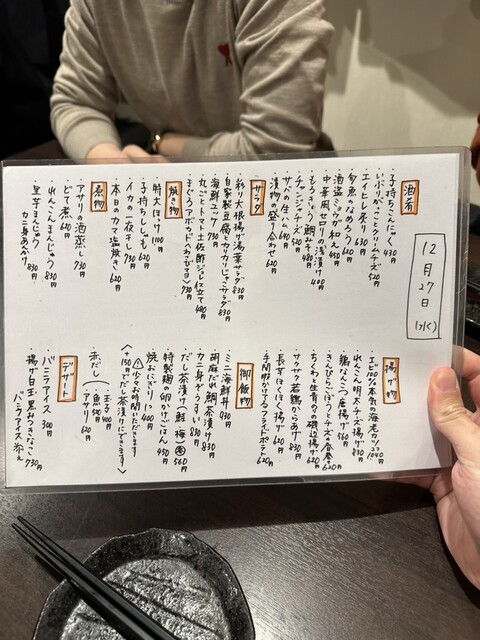 12月27日(水)
酒肴
子持ちこんにゃく 430円
いぶりがっことクリームチーズ 520円
エイヒレ炙り 630円
多魚のなめろう 620円
酒盗とミョウガ和え 450円
中華風セロリの浅漬け 400円
もろきゅう 480円
チャンジャチーズ 510円
サバの生ハム 640円
漬物の盛り合わせ 620円
サラダ
彩り大根揚げ湯葉サラダ 830円
自家製豆腐とカリカリじゃこサラダ 830円
海鮮ユッケ 730円
丸ごとトマト土佐酢ジュレ仕立て 480円
まぐろアボカド 730円
焼き物
特大ほっけ 1100円
子持ちししゃも 620円
イカの一夜干し 730円
本日のカマ塩焼き 620円
煮物
アサリの酒蒸し 730円
どて煮 640円
れんこんまんじゅう 830円
里芋まんじゅう
カニ身あんかけ 830円
揚げ物
エビ100%本気の海老カツ 1040円
れんこん明太チーズ揚げ 830円
鶏なんこつ唐揚げ 560円
きんぴらごぼうとチーズの春巻 620円
ちくわと生青のりの磯辺揚げ 620円
サクサク若鶏からあげ 830円
長芋ほくほく揚げ 620円
手間かけてるフライドポテト 620円
御飯物
ミニ海鮮丼 930円
胡麻だれ鯛茶漬け 830円
カニ身ぞうすい 830円
だし茶漬け(鮭 梅) 560円
特製麹の卵かけごはん 450円
焼おにぎり 1つ 400円
(少々お時間いただきます)
〈+150円でだし茶漬けにできます〉
赤だし
玉子 400円
魚 580円
アサリ 620円
デザート
バニラアイス 300円
揚げ白玉・黒みつきなこ
バニラアイス添え 730円